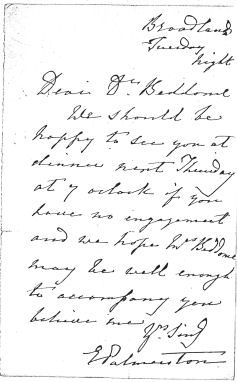 Broadlands
Tuesday
night
Dear Dr. Beddome
We should be
happy to see you at
dinner next Thursday
at 7 oclock if you
have no engagement
and we hope Mrs Beddome
may be well enough
to accompany you
believe me
Yrs Sincy
E Palmerston